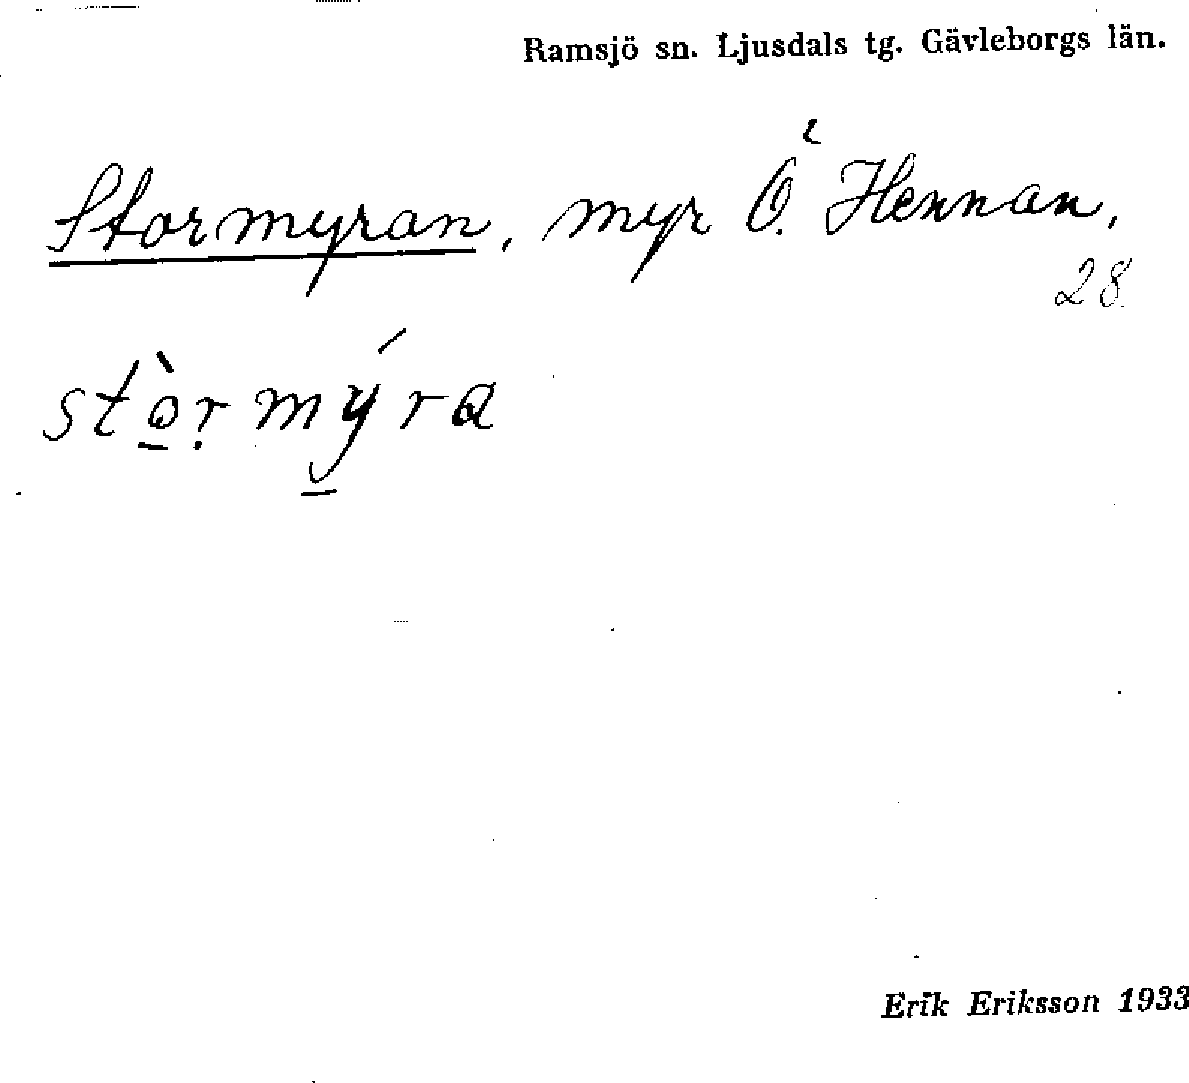 Ramsjö sn. Ljusdals tg. Gävleborgs län.
Stormyran, myr Ö. Hennan,
28.
stò̱ṛmý̱ra
Erik Eriksson 1933